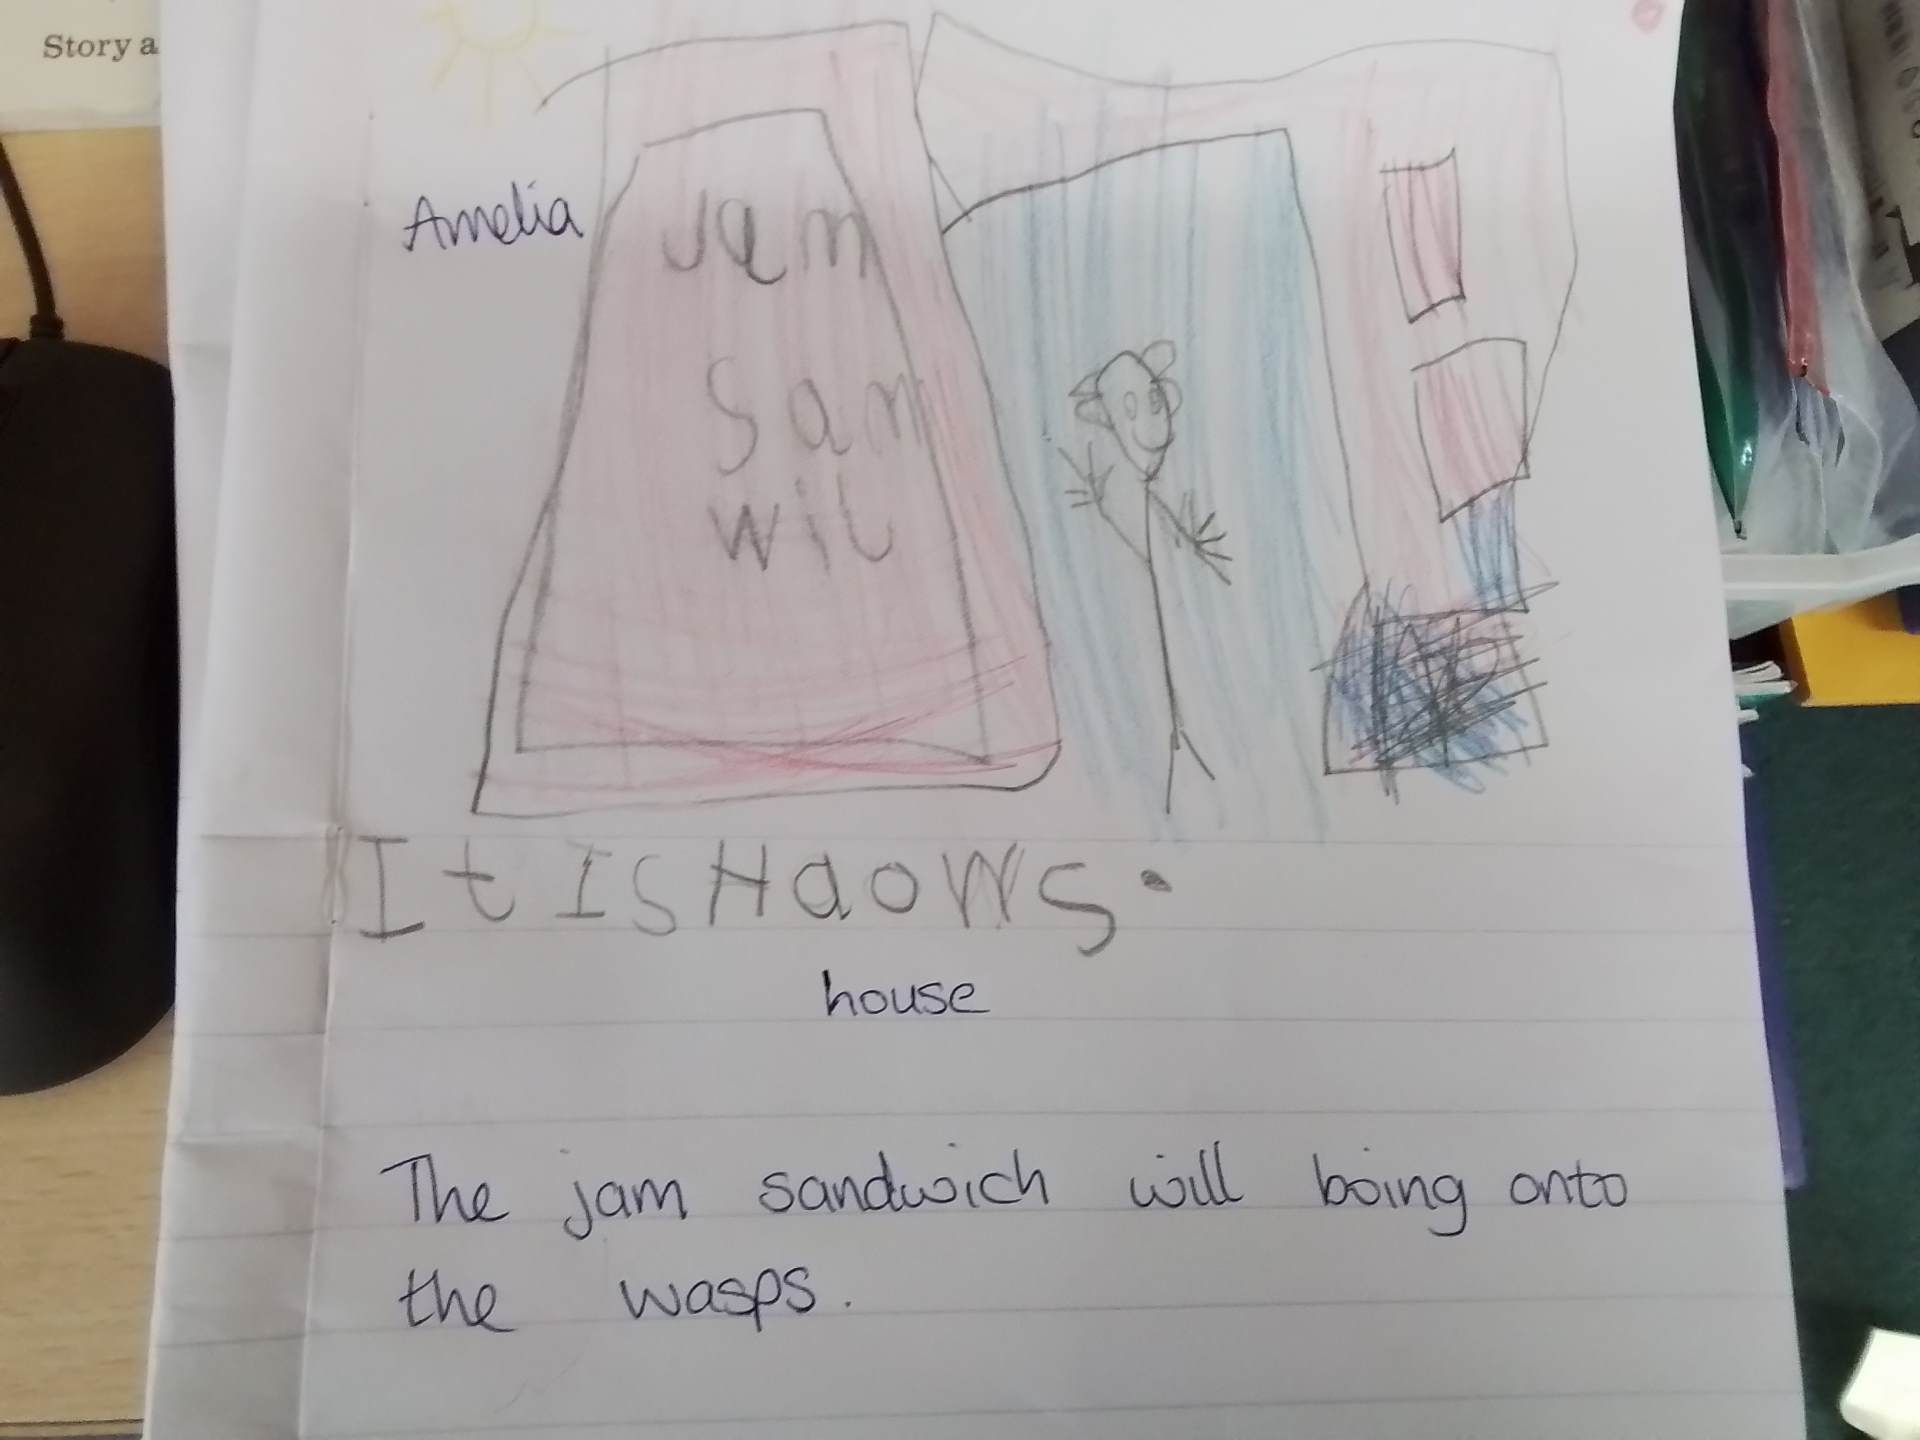 Story a
Amelia
Jam
Sam
wil
It IS Haows.
house
The jam sandwich will boing onto
the wasps.